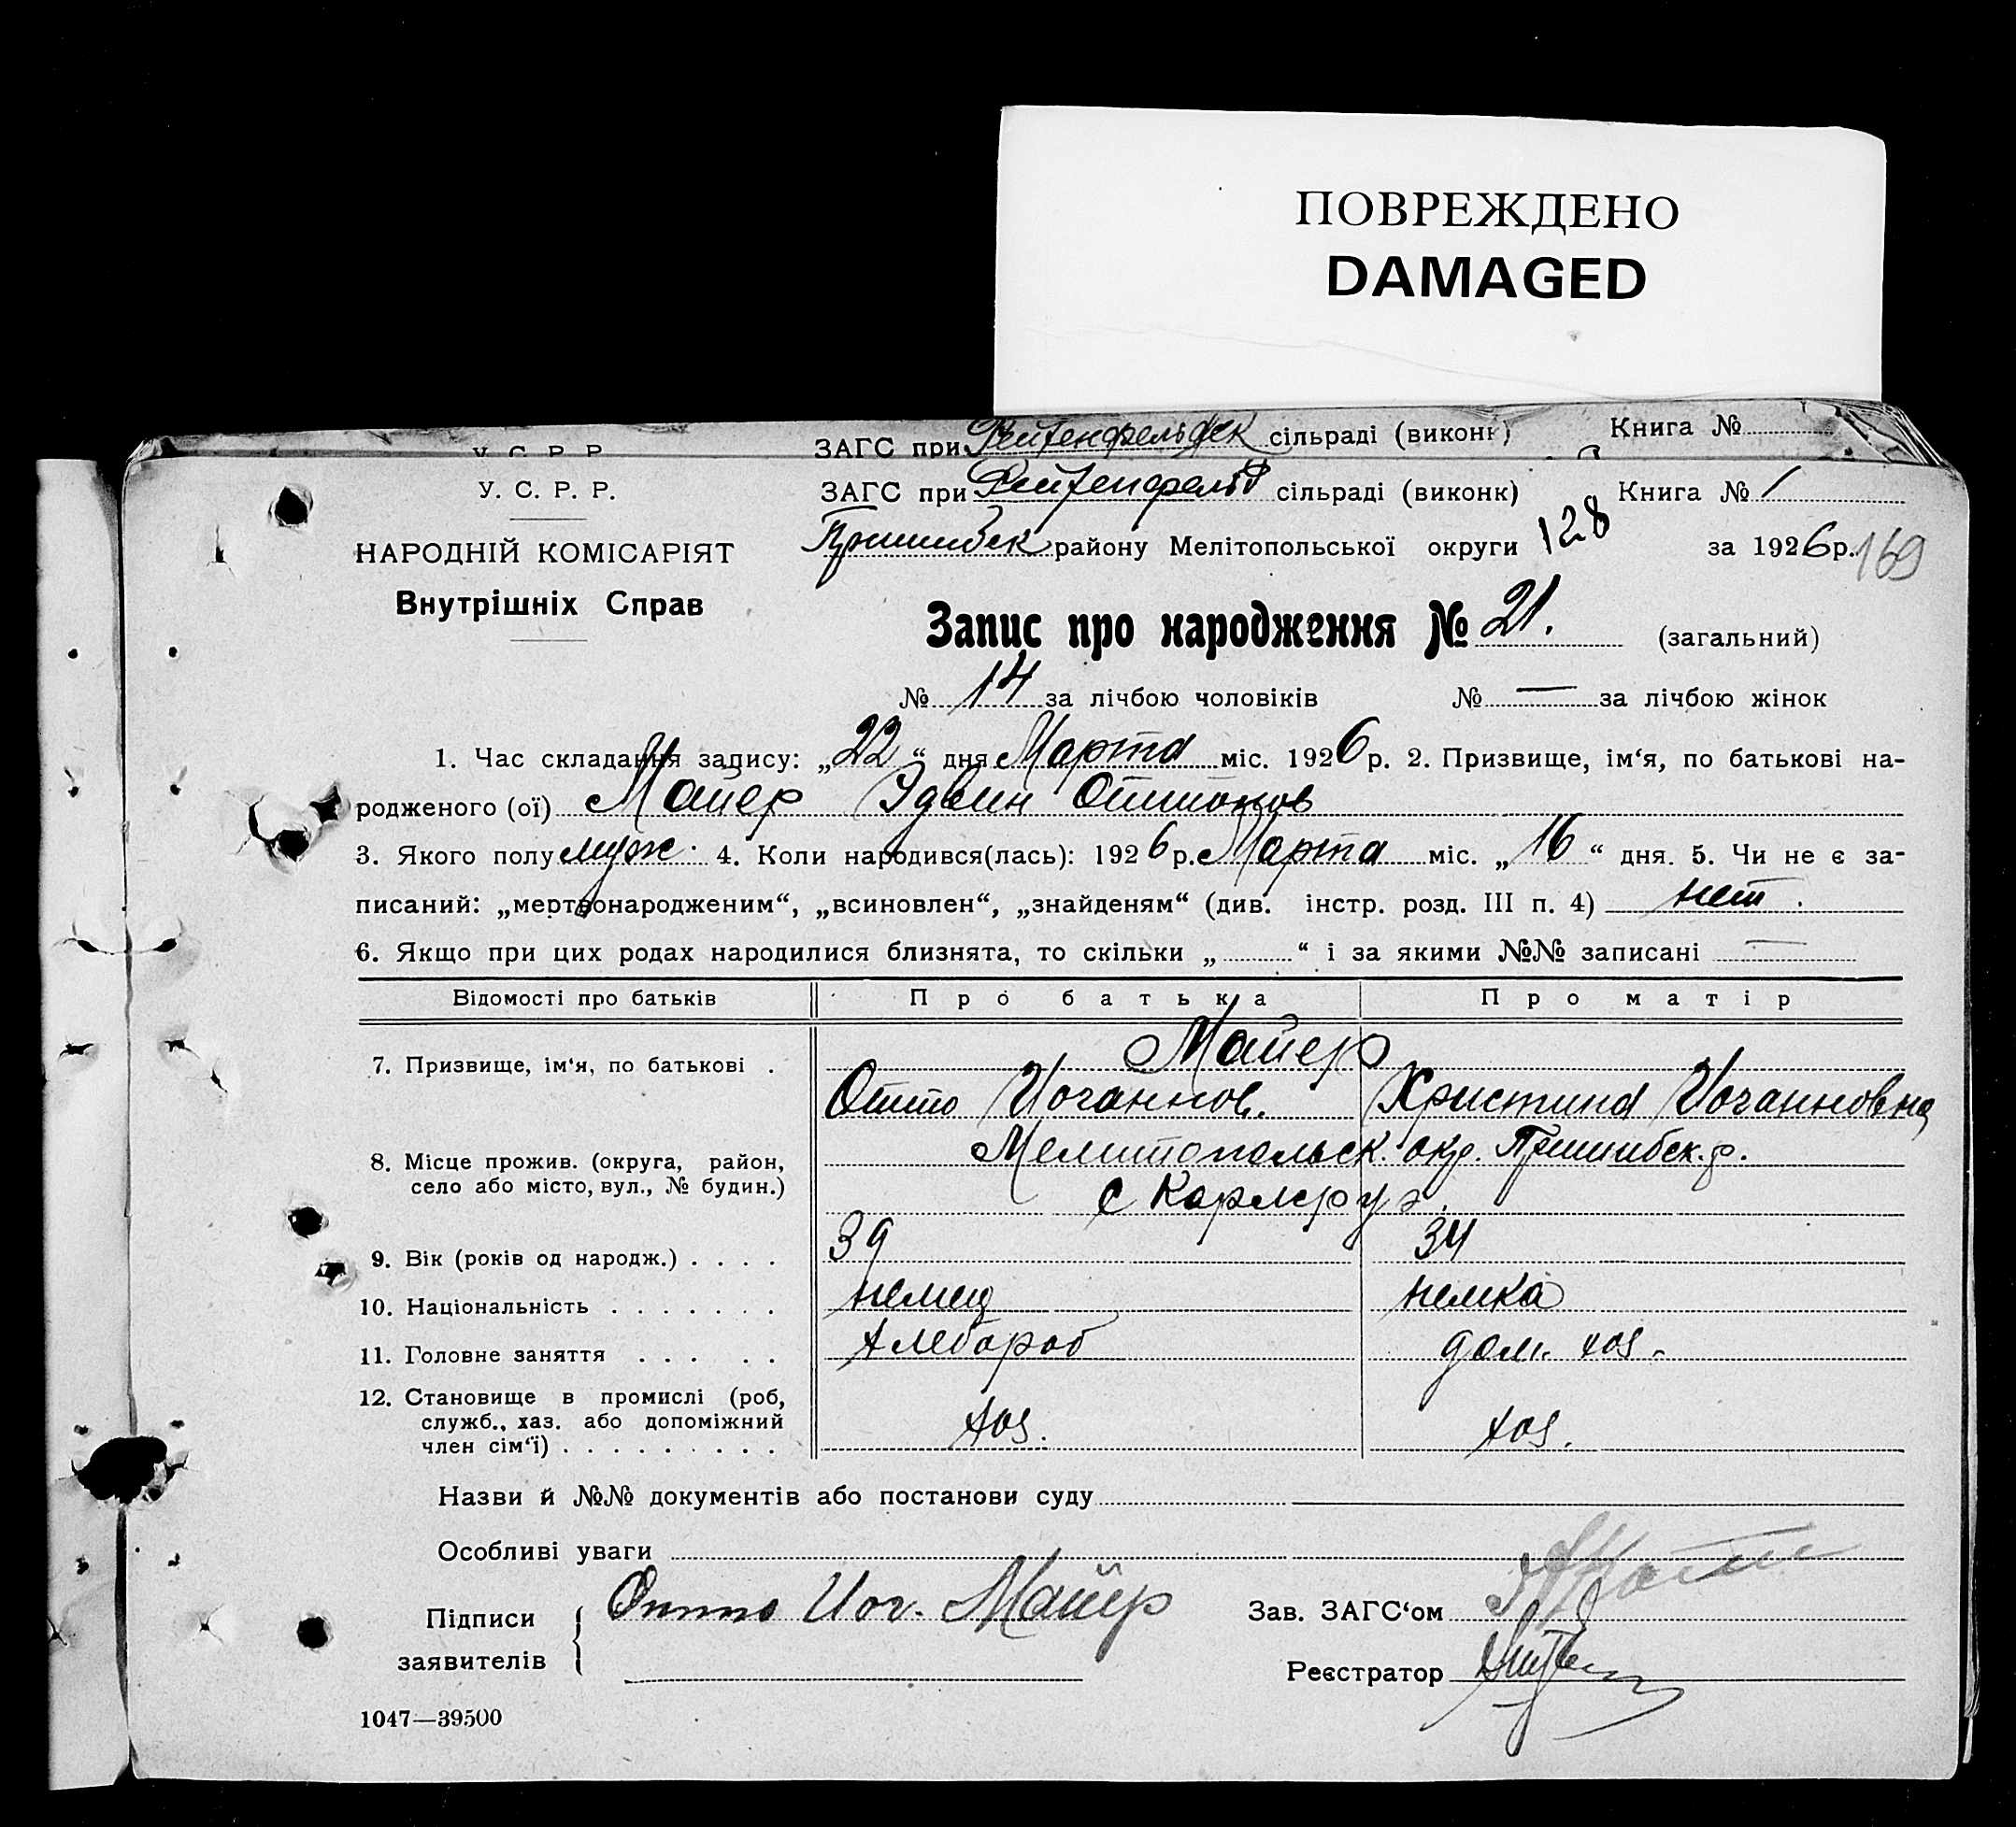 ПОВРЕЖДЕНО
DAMAGED
У. С. Р. Р. ЗАГС при Рейхенфельдск сільраді (виконк) Книга №
У. С. Р. Р. ЗАГС при Рейхенфельд сільраді (виконк) Книга № 1
Пришибск району Мелітопольської округи 128 за 1926 р. 169
НАРОДНІЙ КОМІСАРІЯТ
Внутрішніх Справ
Запис про народження № 21. (загальний)
№ 14 за лічбою чоловіків № — за лічбою жінок
1. Час складання запису: „22“ дня Марта міс. 1926 р. 2. Призвище, ім‘я, по батькові на-
родженого (ої) Майер Эдвин Оттонов
3. Якого полу муж. 4. Коли народився(лась): 1926 р. Марта міс. „16“ дня. 5. Чи не є за-
писаний: „мертвонародженим“, „всиновлен“, „знайденям“ (див. інстр. розд. III п. 4) нет.
6. Якщо при цих родах народилися близнята, то скільки „ “ і за якими №№ записані —
Відомості про батьків Про батька Про матір
Майер
7. Призвище, ім‘я, по батькові . Отто Иоганнов. Христина Иоганновна
8. Місце прожив. (округа, район, село або місто, вул., № будин.) Мелитопольск. окр. Пришибск. р.
с Карлсруэ.
9. Вік (років од народж.) . . . . 39 34
10. Національність . . . . . . . немец немка
11. Головне заняття . . . . . хлебороб дом. хоз.
12. Становище в промислі (роб,
служб., хаз. або допоміжний
член сім‘ї) . . . . . . . . . хоз. хоз.
Назви й №№ документів або постанови суду
Особливі уваги
Підписи
заявителів Отто Иог. Майер
Зав. ЗАГС‘ом
Реєстратор
1047—39500